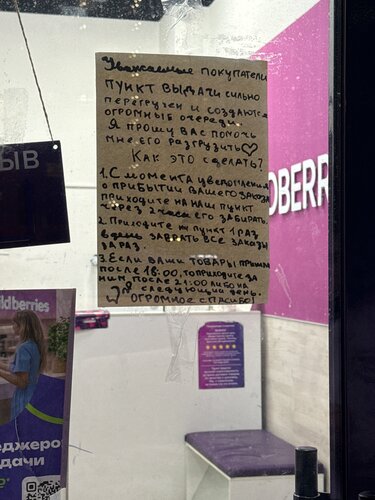 Уважаемые покупатели
ПУНКТ ВЫДАЧИ СИЛЬНО
ПЕРЕГРУЖЕН И СОЗДАЮТСЯ
ОГРОМНЫЕ ОЧЕРЕДИ.
Я ПРОШУ ВАС ПОМОЧЬ
МНЕ ЕГО РАЗГРУЗИТЬ♡
КАК ЭТО СДЕЛАТЬ?
1. С МОМЕНТА УВЕДОМЛЕНИЯ
О ПРИБЫТИИ ВАШЕГО ЗАКАЗА
ПРИХОДИТЕ НА НАШ ПУНКТ
ЧЕРЕЗ 2 часа ЕГО ЗАБИРАТЬ.
2. ПРИХОДИТЕ НА ПУНКТ 1 РАЗ
в день ЗАБРАТЬ ВСЕ ЗАКАЗЫ
ЗА РАЗ.
3. ЕСЛИ ВАШИ ТОВАРЫ ПРИШЛИ
ПОСЛЕ 18:00, ТО ПРИХОДИТЕ ЗА
НИМ ПОСЛЕ 21:00 ЛИБО НА
СЛЕДУЮЩИЙ ДЕНЬ
ОГРОМНОЕ СПАСИБО!
ЫВ
DBERR
ldberries
еджеро
дачи